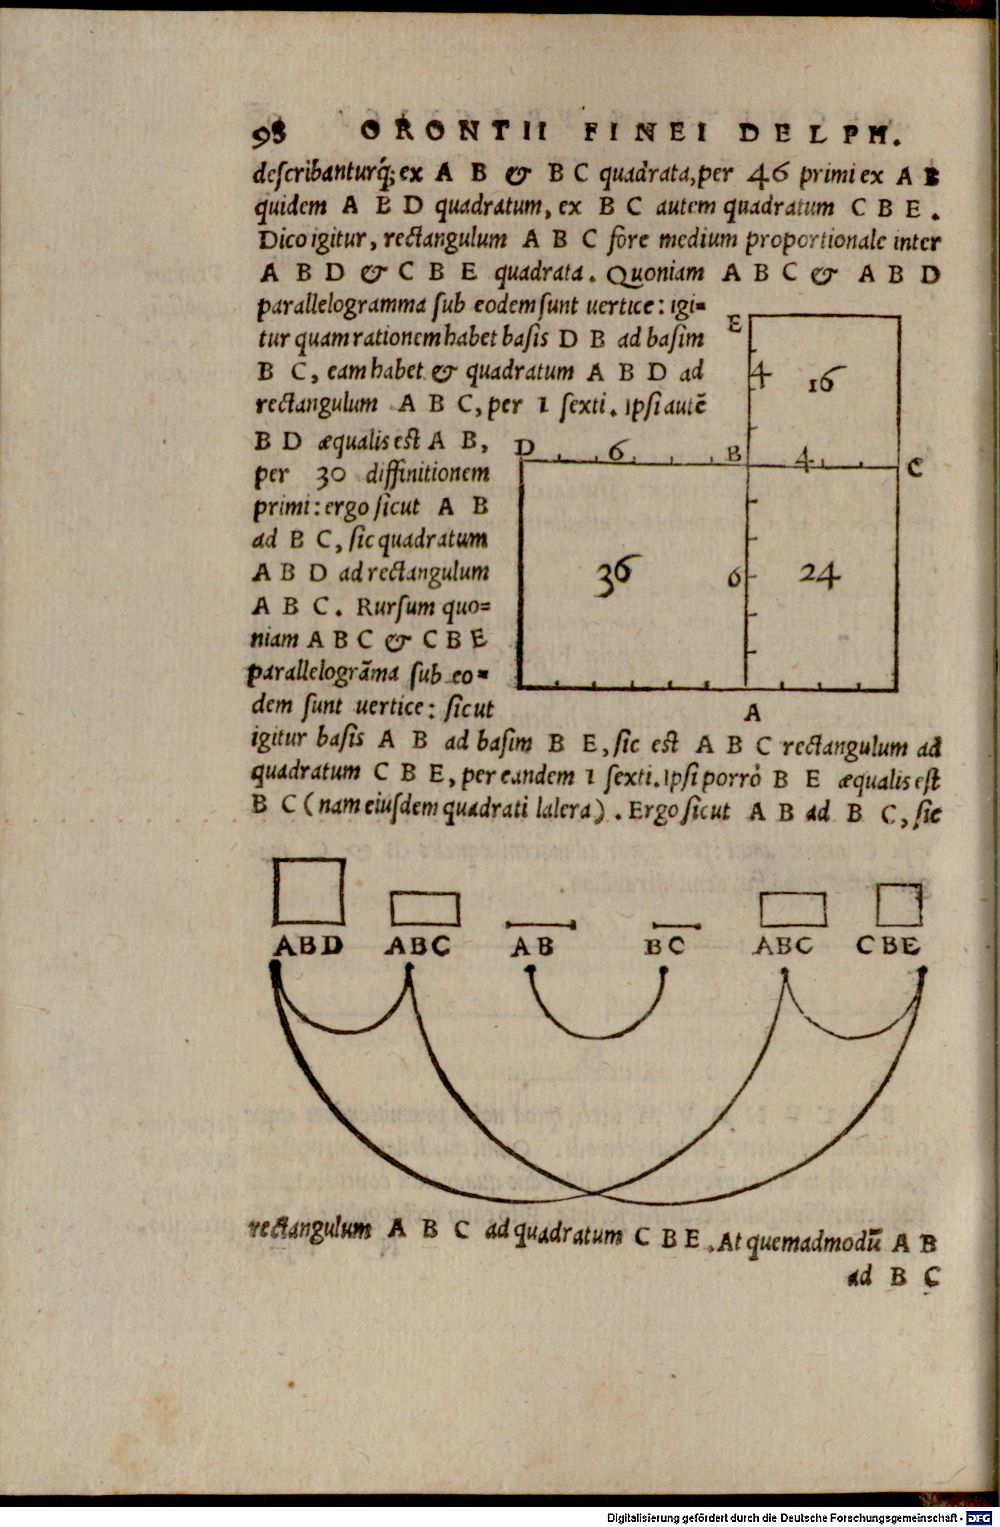 98 ORONTII FINEI DELPH.
describanturq́; ex A B & B C quadrata, per 46 primi ex A B
quidem A B D quadratum, ex B C autem quadratum C B E.
Dico igitur, rectangulum A B C fore medium proportionale inter
A B D & C B E quadrata. Quoniam A B C & A B D
parallelogramma sub eodem sunt uertice: igi=
tur quam rationem habet basis D B ad basim
B C, eam habet & quadratum A B D ad
rectangulum A B C, per 1 sexti. Ipsi autē
B D æqualis est A B,
per 30 diffinitionem
primi: ergo sicut A B
ad B C, sic quadratum
A B D ad rectangulum
A B C. Rursum quo=
niam A B C & C B E
parallelográma sub eo=
dem sunt uertice: sicut
E
4
16
D
6
B
4
C
36
6
24
A
igitur basis A B ad basim B E, sic est A B C rectangulum ad
quadratum C B E, per eandem 1 sexti. Ipsi porrò B E æqualis est
B C (nam eiusdem quadrati latera). Ergo sicut A B ad B C, sic
ABD ABC AB BC ABC CBE
rectangulum A B C ad quadratum C B E. At quemadmodū A B
ad B C
Digitalisierung gefördert durch die Deutsche Forschungsgemeinschaft - DFG